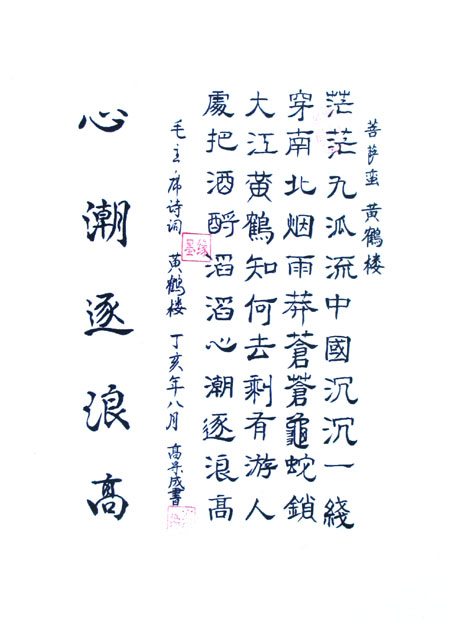 菩萨蛮 黄鹤楼
茫茫九泒流中國沉沉一綫
穿南北烟雨莽蒼蒼龜蛇鎖
大江黄鶴知何去剩有游人
處把酒酹滔滔心潮逐浪髙
毛主席诗词 黄鹤楼 丁亥年八月 髙景成書
墨缘
心潮逐浪髙